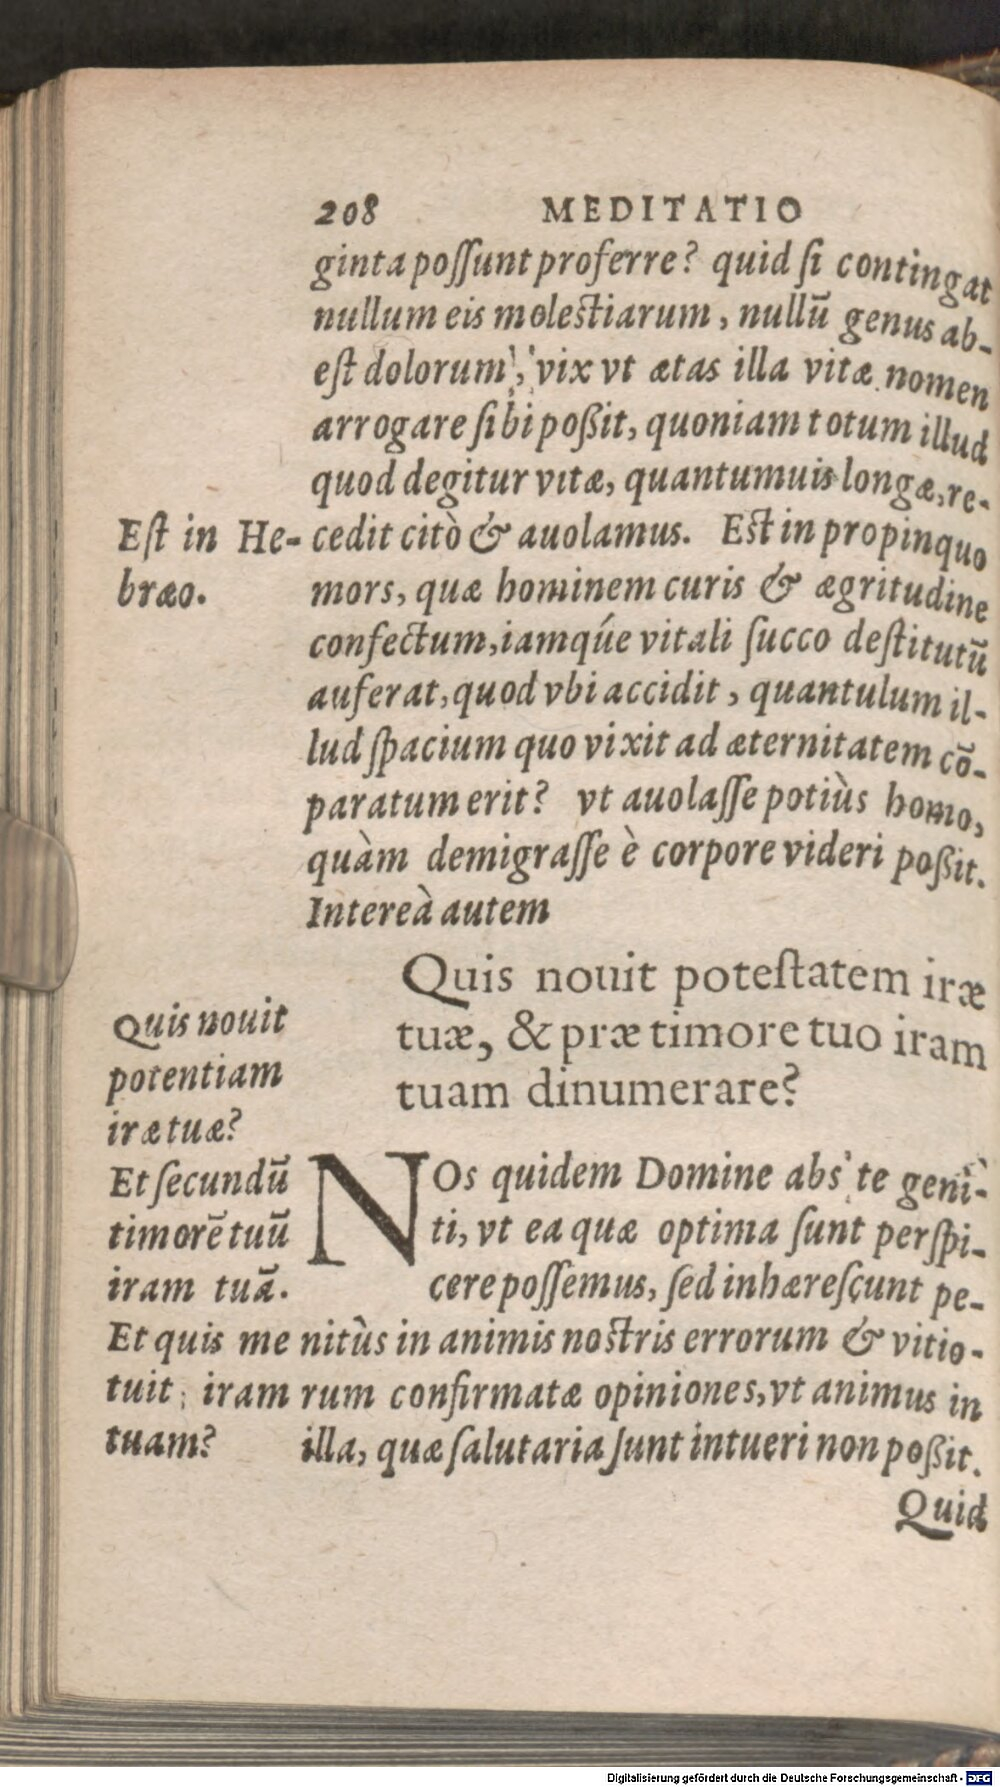 208 MEDITATIO
ginta possunt proferre? quid si contingat
nullum eis molestiarum, nullū genus ab-
est dolorum, vix vt ætas illa vitæ nomen
arrogare sibi poßit, quoniam totum illud
quod degitur vitæ, quantumuis longæ, re-
cedit citò & auolamus. Est in propinquo
mors, quæ hominem curis & ægritudine
confectum, iamqúe vitali succo destitutū
auferat, quod vbi accidit, quantulum il-
lud spacium quo vixit ad æternitatem cō-
paratum erit? vt auolasse potiùs homo,
quàm demigrasse è corpore videri poßit.
Intereà autem
Est in He-
bræo.
Quis nouit potestatem iræ
tuæ, & præ timore tuo iram
tuam dinumerare?
Quis nouit
potentiam
iræ tuæ?
Et secundū
timorē tuū
iram tuā.
Et quis me
tuit iram
tuam?
NOs quidem Domine abs te geni-
ti, vt ea quæ optima sunt perspi-
cere possemus, sed inhærescunt pe-
nitùs in animis nostris errorum & vitio-
rum confirmatæ opiniones, vt animus in
illa, quæ salutaria sunt intueri non poßit.
Quid
Digitalisierung gefördert durch die Deutsche Forschungsgemeinschaft - DFG